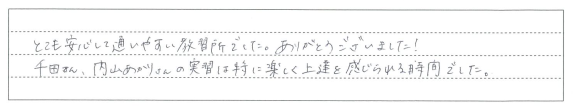 とても安心して通いやすい教習所でした。ありがとうございました!
千田さん、内山あかりさんの実習は特に楽しく上達を感じられる時間でした。